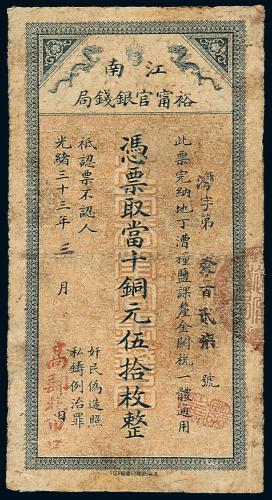 江南
裕甯官銀錢局
灣字第壹百貳拾號
此票完納地丁漕糧鹽課釐金關稅一體通用
憑票取當十銅元伍拾枚整
祇認票不認人
光緒三十三年三月日
奸民偽造照
私鑄例治罪